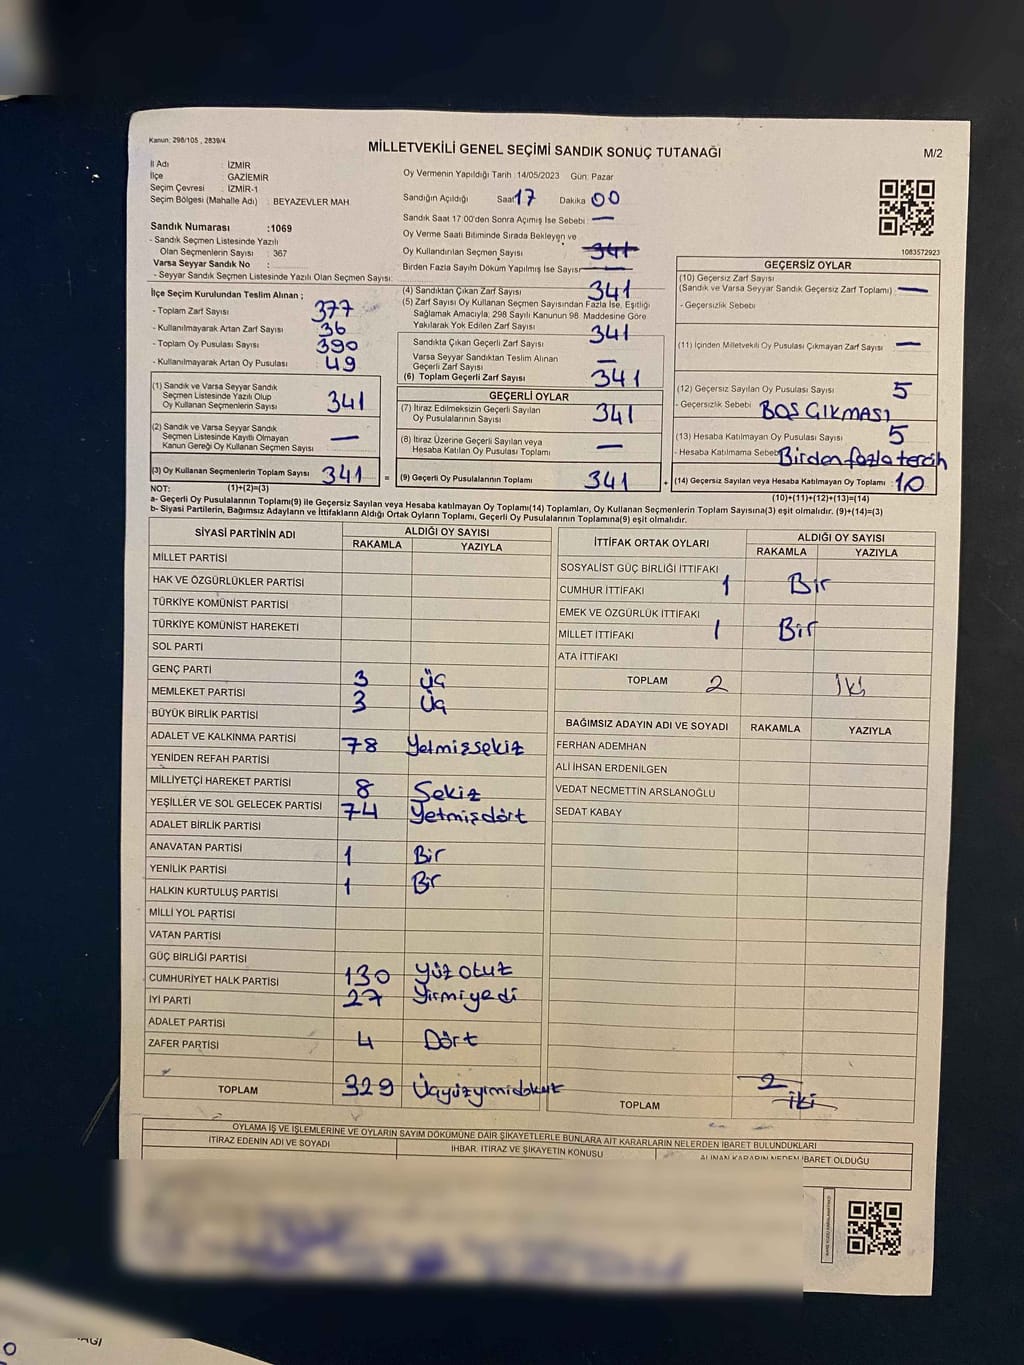 Kanun: 298/105 , 2839/4
MİLLETVEKİLİ GENEL SEÇİMİ SANDIK SONUÇ TUTANAĞI
M/2
İl Adı : İZMİR
İlçe : GAZİEMİR
Seçim Çevresi : İZMİR-1
Seçim Bölgesi (Mahalle Adı) : BEYAZEVLER MAH.
Oy Vermenin Yapıldığı Tarih :14/05/2023 Gün: Pazar
Sandığın Açıldığı Saat 17 Dakika 00
Sandık Saat 17:00'den Sonra Açılmış İse Sebebi —
Oy Verme Saati Bitiminde Sırada Bekleyen ve
Oy Kullandırılan Seçmen Sayısı 341
Birden Fazla Sayım Döküm Yapılmış İse Sayısı —
1083572923
Sandık Numarası :1069
- Sandık Seçmen Listesinde Yazılı
Olan Seçmenlerin Sayısı : 367
Varsa Seyyar Sandık No :
- Seyyar Sandık Seçmen Listesinde Yazılı Olan Seçmen Sayısı:
İlçe Seçim Kurulundan Teslim Alınan ;
- Toplam Zarf Sayısı 377
- Kullanılmayarak Artan Zarf Sayısı 36
- Toplam Oy Pusulası Sayısı 390
- Kullanılmayarak Artan Oy Pusulası 49
(1) Sandık ve Varsa Seyyar Sandık
Seçmen Listesinde Yazılı Olup
Oy Kullanan Seçmenlerin Sayısı 341
(2) Sandık ve Varsa Seyyar Sandık
Seçmen Listesinde Kayıtlı Olmayan
Kanun Gereği Oy Kullanan Seçmen Sayısı —
(3) Oy Kullanan Seçmenlerin Toplam Sayısı 341 =
(4) Sandıktan Çıkan Zarf Sayısı 341
(5) Zarf Sayısı Oy Kullanan Seçmen Sayısından Fazla İse, Eşitliği
Sağlamak Amacıyla; 298 Sayılı Kanunun 98. Maddesine Göre
Yakılarak Yok Edilen Zarf Sayısı
Sandıkta Çıkan Geçerli Zarf Sayısı 341
Varsa Seyyar Sandıktan Teslim Alınan
Geçerli Zarf Sayısı —
(6) Toplam Geçerli Zarf Sayısı 341
GEÇERLİ OYLAR
(7) İtiraz Edilmeksizin Geçerli Sayılan
Oy Pusulalarının Sayısı 341
(8) İtiraz Üzerine Geçerli Sayılan veya
Hesaba Katılan Oy Pusulası Toplamı —
(9) Geçerli Oy Pusulalarının Toplamı 341 +
GEÇERSİZ OYLAR
(10) Geçersiz Zarf Sayısı
(Sandık ve Varsa Seyyar Sandık Geçersiz Zarf Toplamı) —
- Geçersizlik Sebebi
(11) İçinden Milletvekili Oy Pusulası Çıkmayan Zarf Sayısı —
(12) Geçersiz Sayılan Oy Pusulası Sayısı 5
- Geçersizlik Sebebi BOŞ ÇIKMASI
(13) Hesaba Katılmayan Oy Pusulası Sayısı 5
- Hesaba Katılmama Sebebi Birden fazla tercih
(14) Geçersiz Sayılan veya Hesaba Katılmayan Oy Toplamı : 10
NOT: (1)+(2)=(3)
(10)+(11)+(12)+(13)=(14)
a- Geçerli Oy Pusulalarının Toplamı(9) ile Geçersiz Sayılan veya Hesaba katılmayan Oy Toplamı(14) Toplamları, Oy Kullanan Seçmenlerin Toplam Sayısına(3) eşit olmalıdır. (9)+(14)=(3)
b- Siyasi Partilerin, Bağımsız Adayların ve İttifakların Aldığı Ortak Oyların Toplamı, Geçerli Oy Pusulalarının Toplamına(9) eşit olmalıdır.
SİYASİ PARTİNİN ADI ALDIĞI OY SAYISI
RAKAMLA YAZIYLA
MİLLET PARTİSİ
HAK VE ÖZGÜRLÜKLER PARTİSİ
TÜRKİYE KOMÜNİST PARTİSİ
TÜRKİYE KOMÜNİST HAREKETİ
SOL PARTİ
GENÇ PARTİ 3 Üç
MEMLEKET PARTİSİ 3 Üç
BÜYÜK BİRLİK PARTİSİ
ADALET VE KALKINMA PARTİSİ 78 Yetmişsekiz
YENİDEN REFAH PARTİSİ
MİLLİYETÇİ HAREKET PARTİSİ 8 Sekiz
YEŞİLLER VE SOL GELECEK PARTİSİ 74 Yetmişdört
ADALET BİRLİK PARTİSİ
ANAVATAN PARTİSİ 1 Bir
YENİLİK PARTİSİ 1 Bir
HALKIN KURTULUŞ PARTİSİ
MİLLİ YOL PARTİSİ
VATAN PARTİSİ
GÜÇ BİRLİĞİ PARTİSİ
CUMHURİYET HALK PARTİSİ 130 Yüz otuz
İYİ PARTİ 27 Yirmiyedi
ADALET PARTİSİ
ZAFER PARTİSİ 4 Dört
TOPLAM 329 Üçyüzyirmidokuz
İTTİFAK ORTAK OYLARI ALDIĞI OY SAYISI
RAKAMLA YAZIYLA
SOSYALİST GÜÇ BİRLİĞİ İTTİFAKI
CUMHUR İTTİFAKI 1 Bir
EMEK VE ÖZGÜRLÜK İTTİFAKI
MİLLET İTTİFAKI 1 Bir
ATA İTTİFAKI
TOPLAM 2 İki
BAĞIMSIZ ADAYIN ADI VE SOYADI RAKAMLA YAZIYLA
FERHAN ADEMHAN
ALİ İHSAN ERDENİLGEN
VEDAT NECMETTİN ARSLANOĞLU
SEDAT KABAY
TOPLAM 2 iki
OYLAMA İŞ VE İŞLEMLERİNE VE OYLARIN SAYIM DÖKÜMÜNE DAİR ŞİKAYETLERLE BUNLARA AİT KARARLARIN NELERDEN İBARET BULUNDUKLARI
İTİRAZ EDENİN ADI VE SOYADI İHBAR, İTİRAZ VE ŞİKAYETİN KONUSU ALINAN KARARIN NEDEN İBARET OLDUĞU